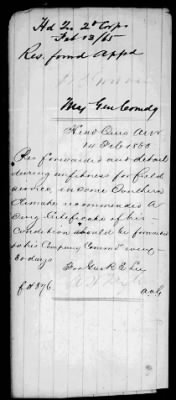 Hd Qrs 2d Corps
Feb 13/65
Res. forwd Appd
Maj Gen Comdg
Head Qrs ANV
14 Feb 1865
Res forwarded and detail
during unfitness for field
service in some Southern
Climate recommended A
Surg Certificate of his
Condition should be furnished
to his Company Comdr every
30 days
For Genl R E Lee
AAG